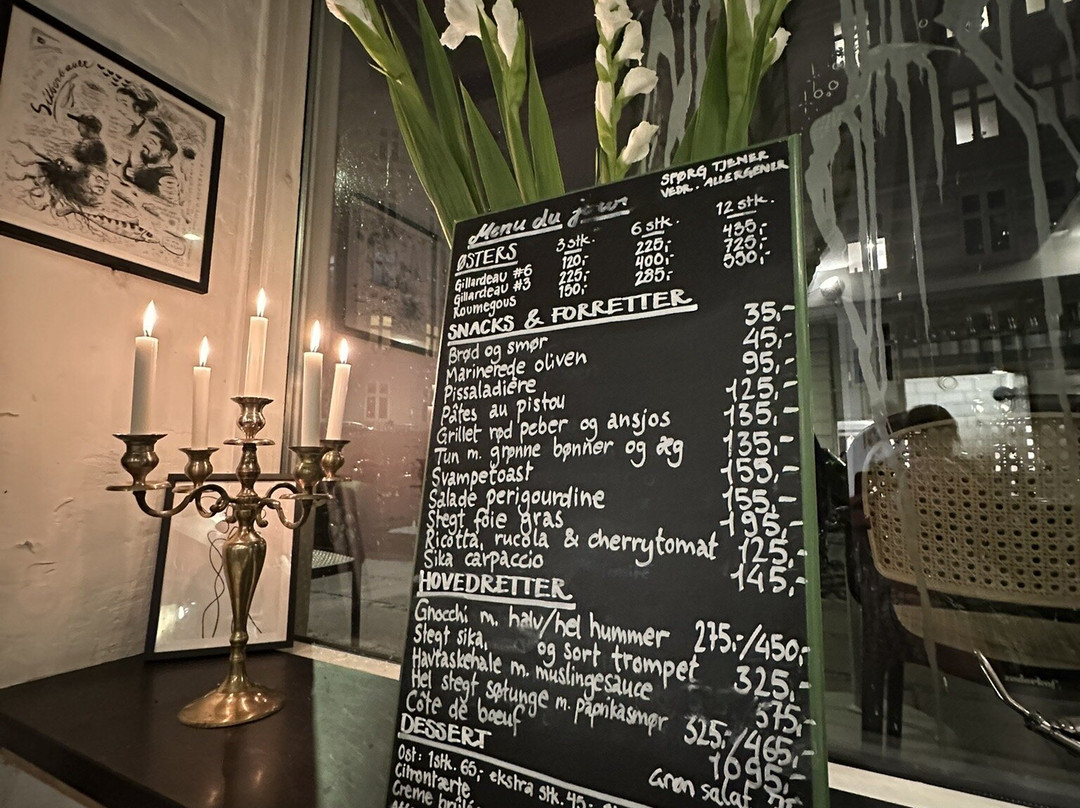 Silberbauer
SPØRG TJENER
VEDR. ALLERGENER
Menu du jour
ØSTERS 3 stk. 6 stk. 12 stk.
Gillardeau #6 120,- 225,- 435,-
Gillardeau #3 225,- 400,- 725,-
Roumegous 150,- 285,- 550,-
SNACKS & FORRETTER
Brød og smør 35,-
Marinerede oliven 45,-
Pissaladière 95,-
Pâtes au pistou 125,-
Grillet rød peber og ansjos 135,-
Tun m. grønne bønner og æg 135,-
Svampetoast 155,-
Salade perigourdine 155,-
Stegt foie gras 195,-
Ricotta, rucola & cherrytomat 125,-
Sika carpaccio 145,-
HOVEDRETTER
Gnocchi m. halv/hel hummer 275,-/450,-
Stegt sika, og sort trompet 325,-
Havtaskehale m. muslingesauce
Hel stegt søtunge m. paprikasmør 325,-/465,-
Côte de bœuf 1095,-
Grøn salat
DESSERT
Ost: 1 stk. 65,- ekstra stk. 45,-
Citrontærte